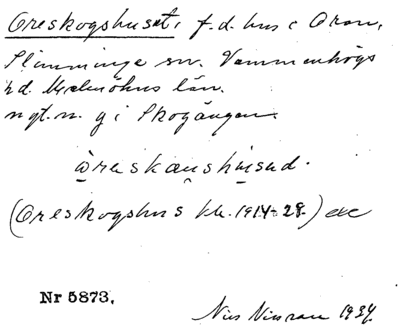 Oreskogshuset, f.d. hus i Oran,
Slimminge sn. Vemmenhögs
hd. Malmöhus län.
ngt. n. g i Skogängen.
öreskaushused.
(Oreskogshus kk. 1914-28.)
Nr 5873,
Nils 1934.